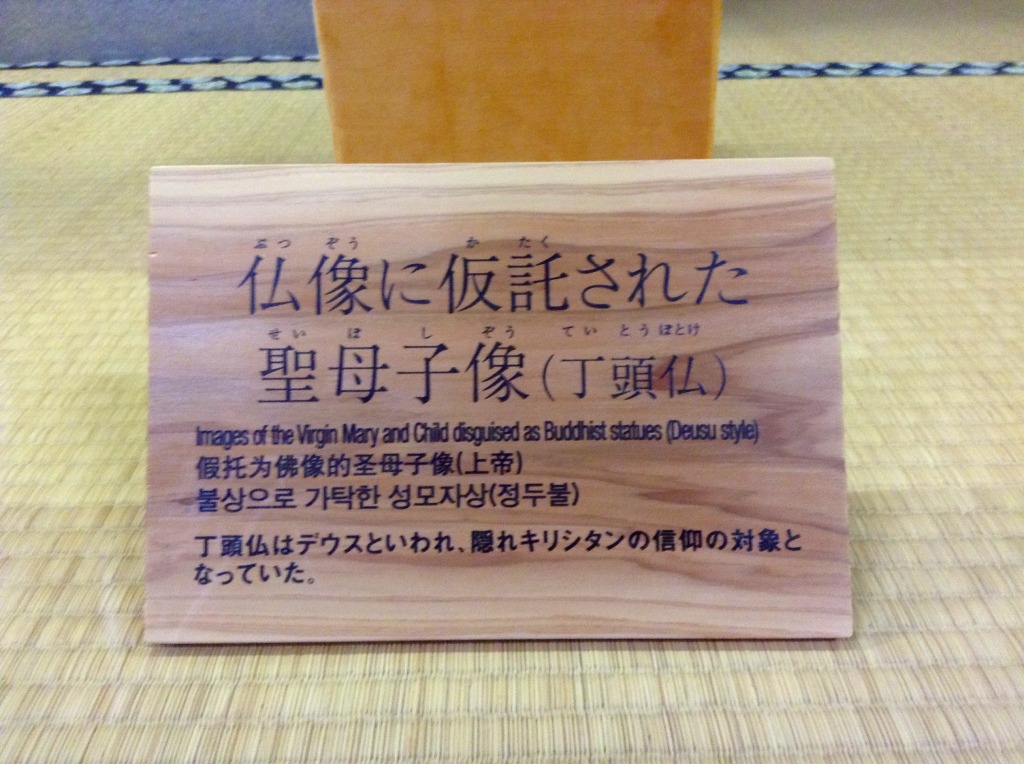 ぶつ ぞう か たく
仏像に仮託された
せい ぼ し ぞう てい とう ほとけ
聖母子像(丁頭仏)
Images of the Virgin Mary and Child disguised as Buddhist statues (Deusu style)
假托为佛像的圣母子像(上帝)
불상으로 가탁한 성모자상(정두불)
丁頭仏はデウスといわれ、隠れキリシタンの信仰の対象と
なっていた。